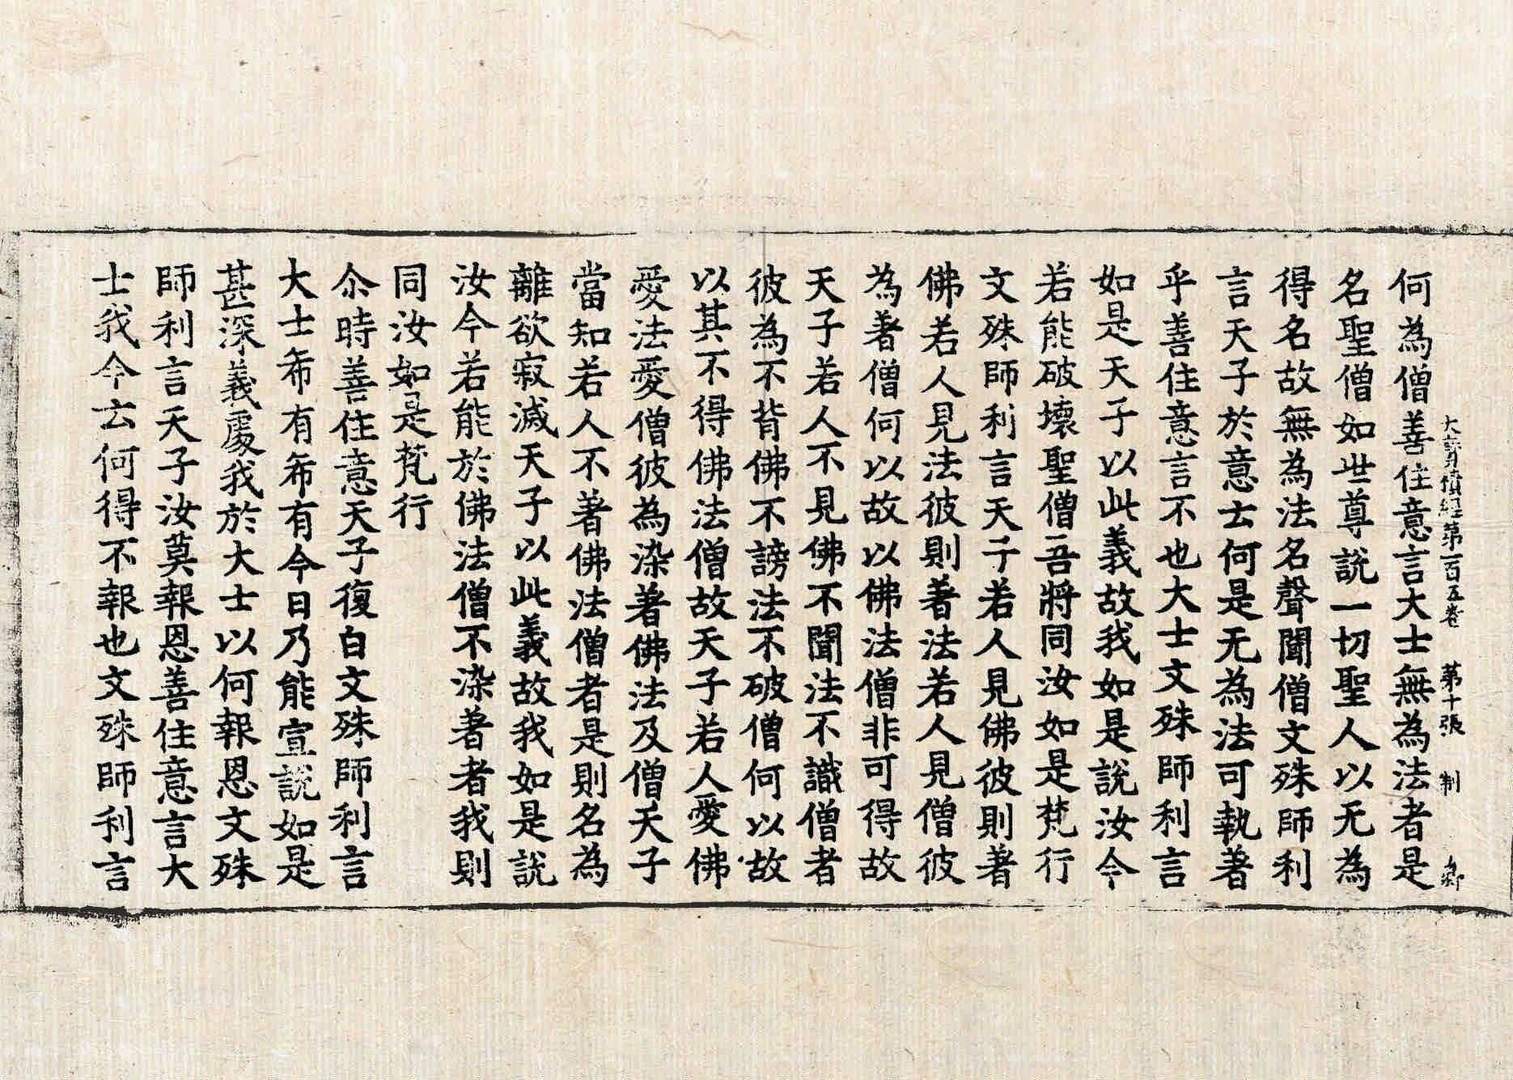 大寶積經第一百五卷 第十張 制
何為僧善住意言大士無為法者是
名聖僧如世尊說一切聖人以无為
得名故無為法名聲聞僧文殊師利
言天子於意士何是无為法可執著
乎善住意言不也大士文殊師利言
如是天子以此義故我如是說汝今
若能破壞聖僧吾將同汝如是梵行
文殊師利言天子若人見佛彼則著
佛若人見法彼則著法若人見僧彼
為著僧何以故以佛法僧非可得故
天子若人不見佛不聞法不識僧者
彼為不背佛不謗法不破僧何以故
以其不得佛法僧故天子若人愛佛
愛法愛僧彼為染著佛法及僧天子
當知若人不著佛法僧者是則名為
離欲寂滅天子以此義故我如是說
汝今若能於佛法僧不染著者我則
同汝如是梵行
尒時善住意天子復白文殊師利言
大士希有希有今日乃能宣說如是
甚深義處我於大士以何報恩文殊
師利言天子汝莫報恩善住意言大
士我今云何得不報也文殊師利言